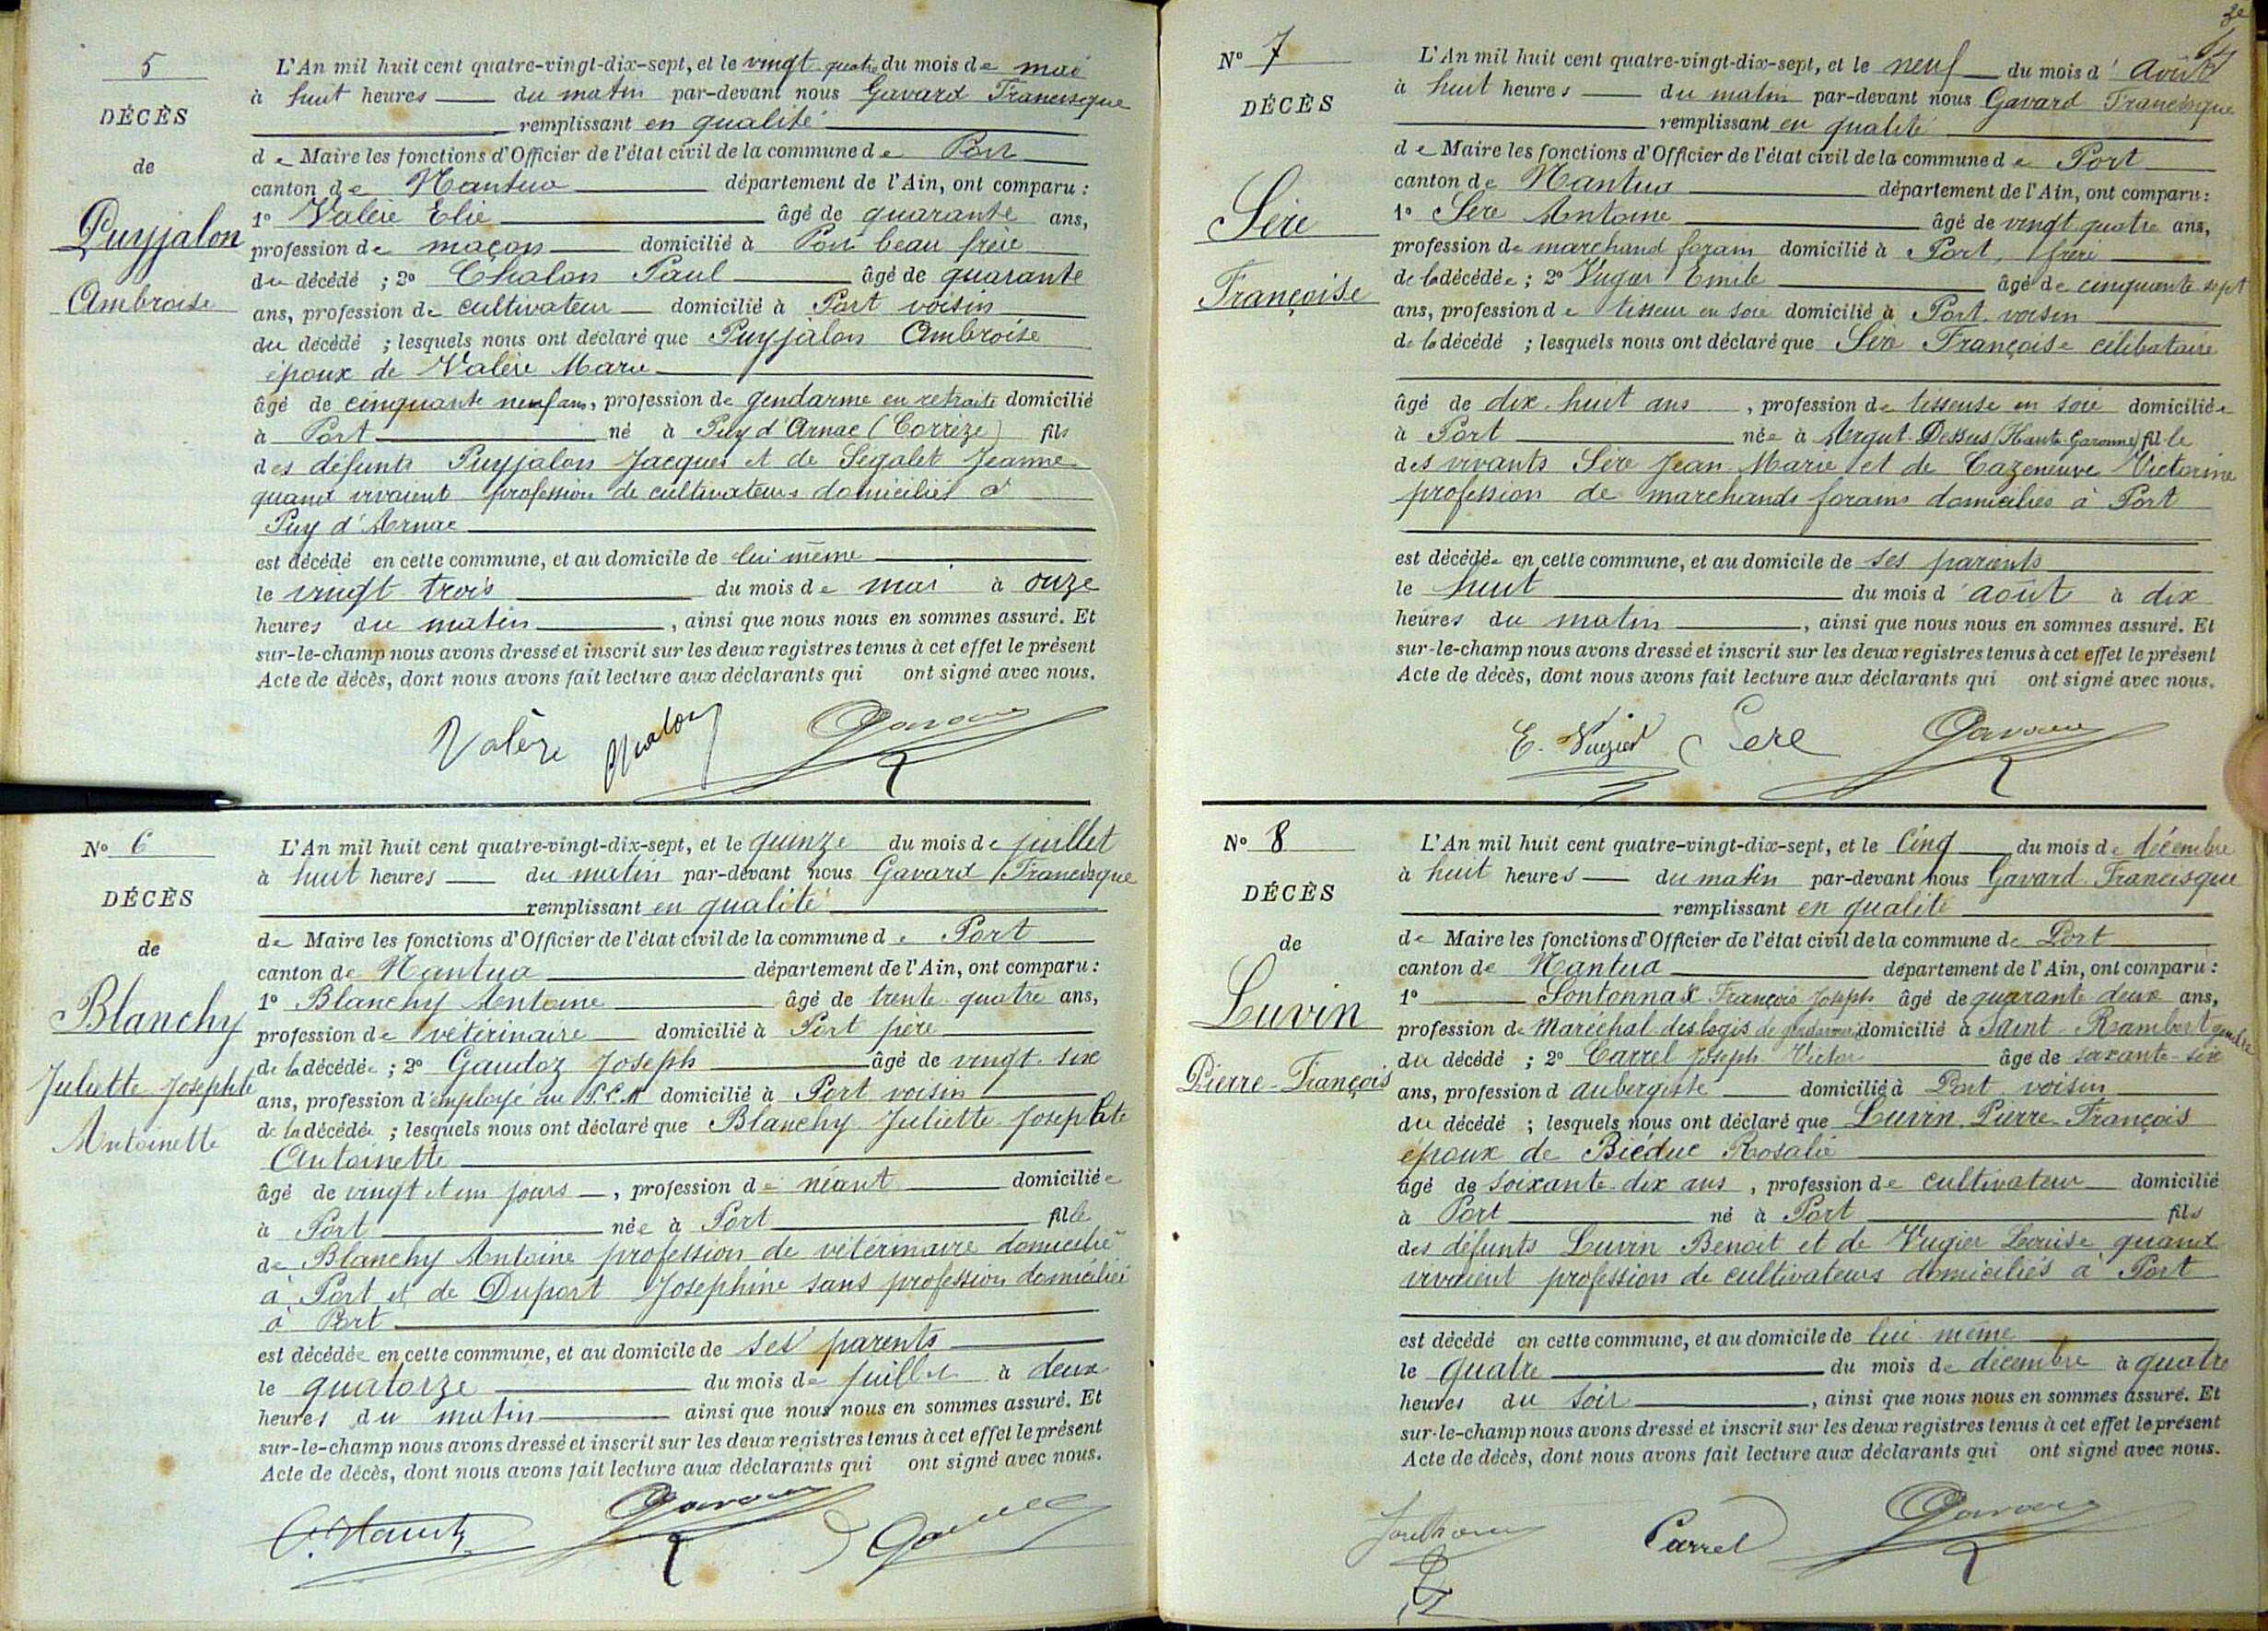 5
DÉCÈS
de
Puyjalon
Ambroise
L'An mil huit cent quatre-vingt-dix-sept, et le vingt quatre du mois de mai
à huit heures du matin par-devant nous Gavard Francisque
remplissant en qualité
de Maire les fonctions d'Officier de l'état civil de la commune de Port
canton de Nantua département de l'Ain, ont comparu :
1° Valére Elie âgé de quarante ans,
profession de maçon domicilié à Port beau frère
du décédé ; 2° Chalon Paul âgé de quarante
ans, profession de cultivateur domicilié à Port voisin
du décédé ; lesquels nous ont déclaré que Puyjalon Ambroise
époux de Valére Marie
âgé de cinquante neuf ans, profession de gendarme en retraite domicilié
à Port né à Puy d'Arnac (Corrèze) fils
des défunts Puyjalon Jacques et de Segalet Jeanne
quand vivaient profession de cultivateurs domiciliés à
Puy d'Arnac
est décédé en cette commune, et au domicile de lui même
le vingt trois du mois de mai à onze
heures du matin, ainsi que nous nous en sommes assuré. Et
sur-le-champ nous avons dressé et inscrit sur les deux registres tenus à cet effet le présent
Acte de décès, dont nous avons fait lecture aux déclarants qui ont signé avec nous.
Valère Chalon Gavard
N° 6
DÉCÈS
de
Blanchy
Juliette Josephte
Antoinette
L'An mil huit cent quatre-vingt-dix-sept, et le quinze du mois de juillet
à huit heures du matin par-devant nous Gavard Francisque
remplissant en qualité
de Maire les fonctions d'Officier de l'état civil de la commune de Port
canton de Nantua département de l'Ain, ont comparu :
1° Blanchy Antoine âgé de trente quatre ans,
profession de vétérinaire domicilié à Port père
de la décédée ; 2° Gaudoz Joseph âgé de vingt six
ans, profession d'employé au P.L.M domicilié à Port voisin
de la décédée ; lesquels nous ont déclaré que Blanchy Juliette Josephte
Antoinette
âgé de vingt et un jours, profession de néant domiciliée
à Port née à Port fille
de Blanchy Antoine profession de vétérinaire domicilié
à Port et de Duport Josephine sans profession domiciliés
à Port
est décédée en cette commune, et au domicile de ses parents
le quatorze du mois de juillet à deux
heures du matin ainsi que nous nous en sommes assuré. Et
sur-le-champ nous avons dressé et inscrit sur les deux registres tenus à cet effet le présent
Acte de décès, dont nous avons fait lecture aux déclarants qui ont signé avec nous.
Gavard
N° 7
DÉCÈS
Sère
Françoise
L'An mil huit cent quatre-vingt-dix-sept, et le neuf du mois d'Août
à huit heures du matin par-devant nous Gavard Francisque
remplissant en qualité
de Maire les fonctions d'Officier de l'état civil de la commune de Port
canton de Nantua département de l'Ain, ont comparu :
1° Sère Antoine âgé de vingt quatre ans,
profession de marchand forain domicilié à Port, frère
de la décédée ; 2° Vugier Emile âgé de cinquante sept
ans, profession de tisseur en soie domicilié à Port. voisin
de la décédé ; lesquels nous ont déclaré que Sère Françoise célibataire
âgé de dix-huit ans, profession de tisseuse en soie domiciliée
à Port née à Argut-Dessus (Haute-Garonne) fille
des vivants Sère Jean Marie et de Cazeneuve Victorine
profession de marchands forains domiciliés à Port
est décédée en cette commune, et au domicile de ses parents
le huit du mois d'août à dix
heures du matin, ainsi que nous nous en sommes assuré. Et
sur-le-champ nous avons dressé et inscrit sur les deux registres tenus à cet effet le présent
Acte de décès, dont nous avons fait lecture aux déclarants qui ont signé avec nous.
E. Vugier Sere Gavard
N° 8
DÉCÈS
de
Luvin
Pierre-François
L'An mil huit cent quatre-vingt-dix-sept, et le Cinq du mois de décembre
à huit heures du matin par-devant nous Gavard Francisque
remplissant en qualité
de Maire les fonctions d'Officier de l'état civil de la commune de Port
canton de Nantua département de l'Ain, ont comparu :
1° Sontonnax François Joseph âgé de quarante deux ans,
profession de Maréchal des logis de gendarmerie domicilié à Saint-Rambert gendre
du décédé ; 2° Carrel Joseph Victor âgé de soixante-six
ans, profession d'aubergiste domicilié à Port voisin
du décédé ; lesquels nous ont déclaré que Luvin Pierre-François
époux de Biéduc Rosalie
âgé de soixante-dix ans, profession de cultivateur domicilié
à Port né à Port fils
des défunts Luvin Benoit et de Vugier Louise quand
vivaient profession de cultivateurs domiciliés à Port
est décédé en cette commune, et au domicile de lui même
le quatre du mois de décembre à quatre
heures du soir, ainsi que nous nous en sommes assuré. Et
sur-le-champ nous avons dressé et inscrit sur les deux registres tenus à cet effet le présent
Acte de décès, dont nous avons fait lecture aux déclarants qui ont signé avec nous.
Carrel Gavard